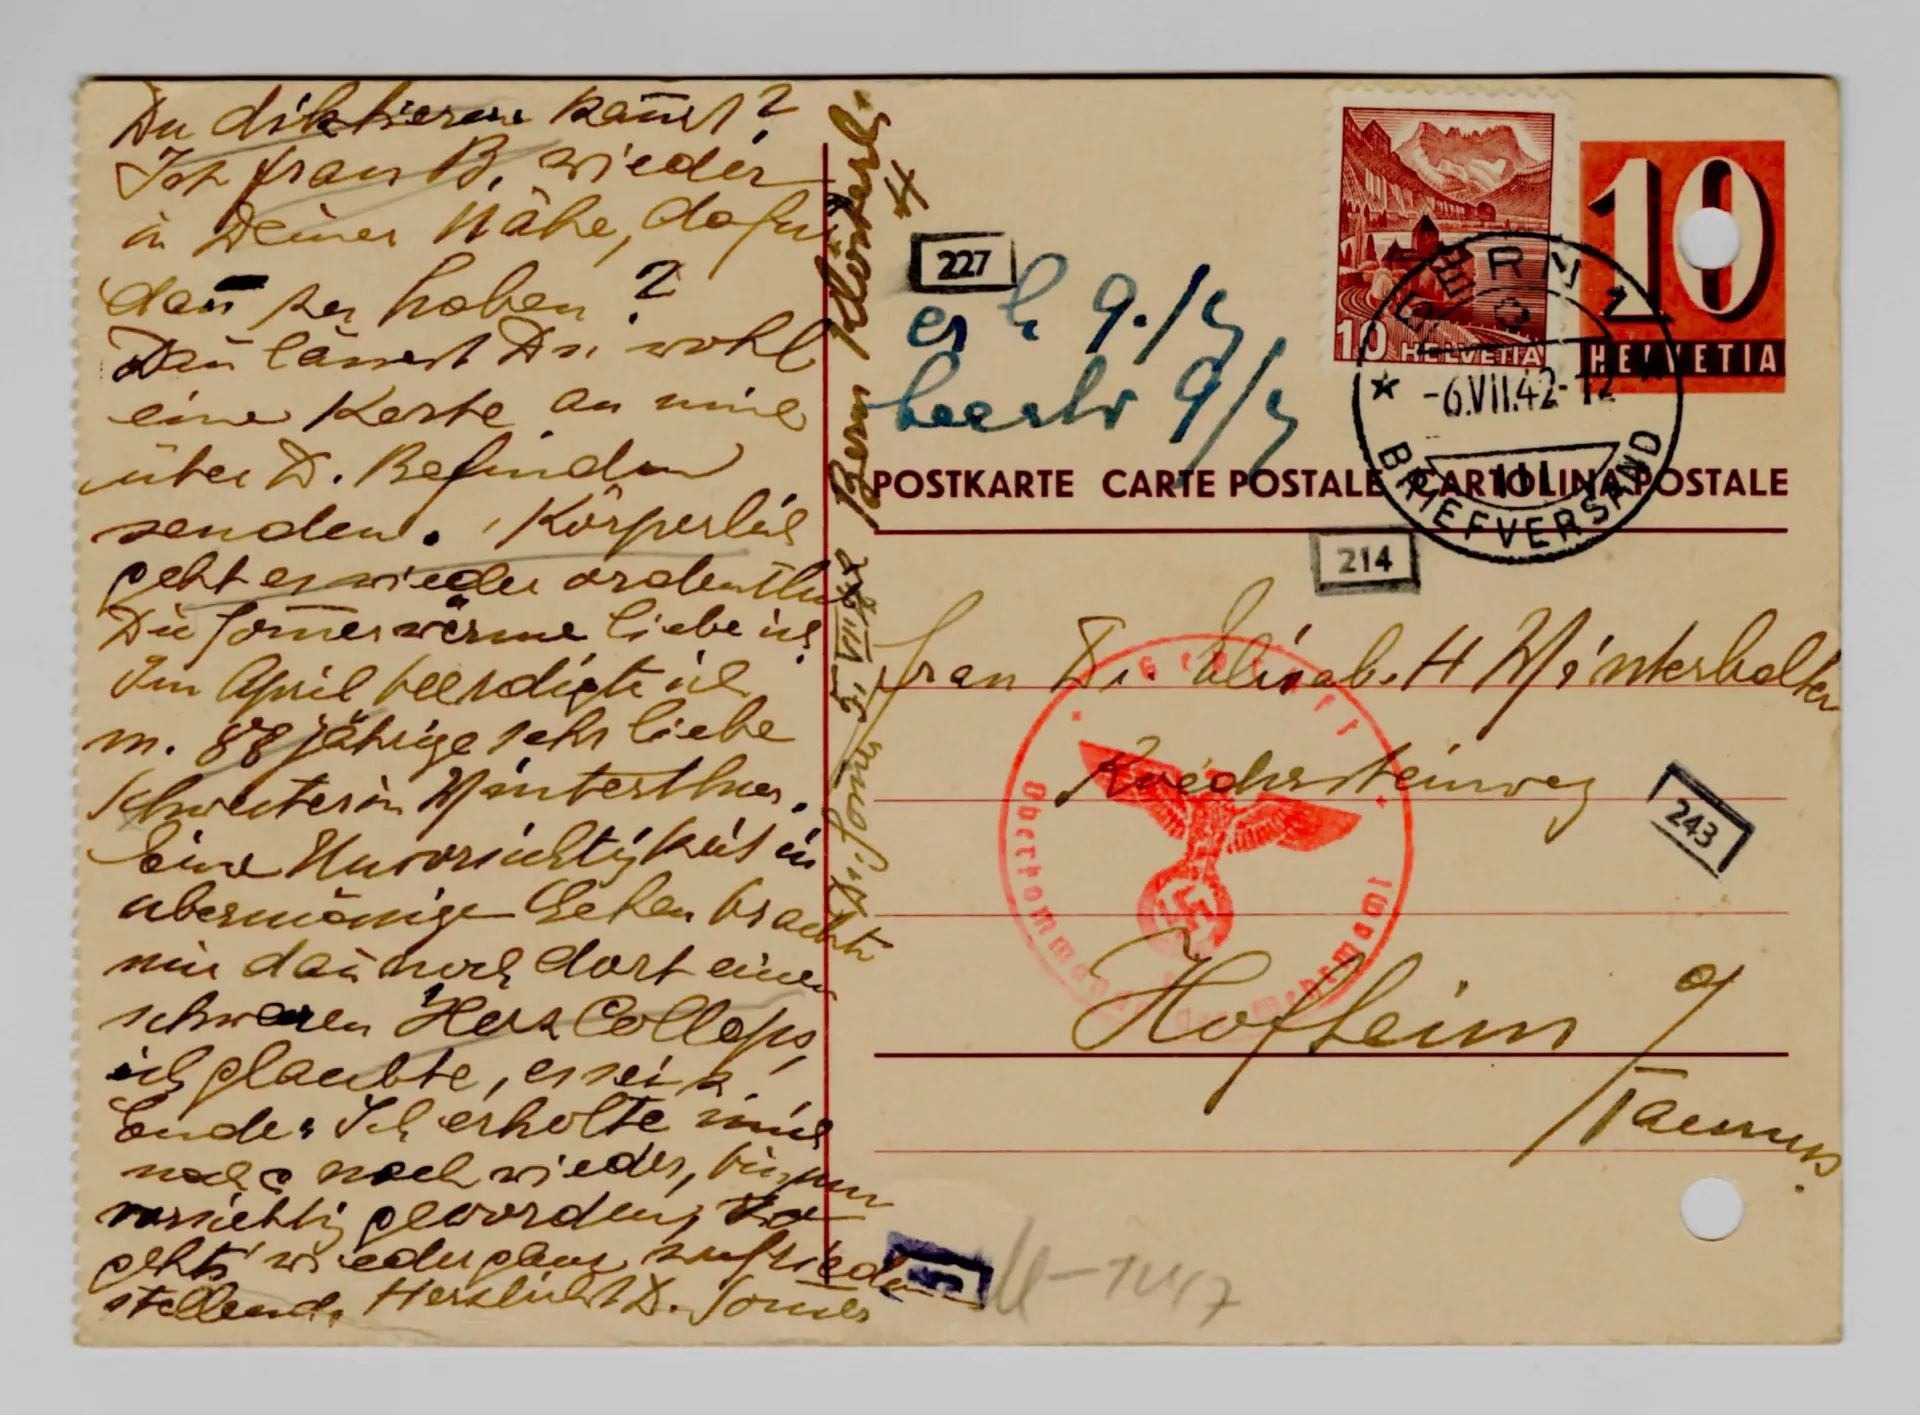 Du diktieren kannst?
Ist Frau B. wieder
in Deiner Nähe, dafür
dañ zu haben?
Dañ lässest Du wohl
eine Karte an mich
über D. Befinden
senden. Körperlich
geht es wieder ordentlich
Die Som̄erwärme liebe ich.
Im April beerdigte ich
m. 88 jährige sehr liebe
Schwester in Winterthur.
Eine Unvorsichtigkeit in
übermässige Gehen brachte
mir dañ noch dort einen
schweren Herz Collaps,
ich glaubte, es sei z.
Ende. Ich erholte mich
nach u nach wieder, bin nun
vorsichtig geworden, da
geht's wieder ganz zufrieden
stellend. Herzlichst D. Som̄er
Bern
5. VII 42
227
9./7
9/7
10 HELVETIA
10
HELVETIA
BERN 1
-6.VII.42-12
III
BRIEFVERSAND
POSTKARTE CARTE POSTALE CARTOLINA POSTALE
214
Frau Dr. Elisab. H Winterhalter
Geprüft
Oberkommando der Wehrmacht
243
Hofheim a/
Taunus.